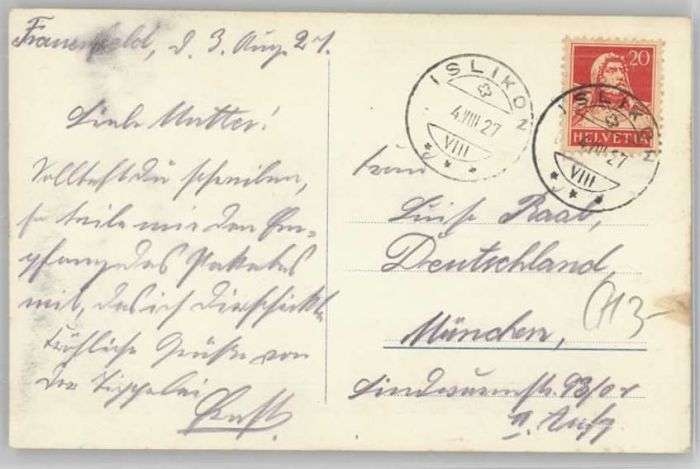 Frauenfeld, d. 3. Aug. 27.
Liebe Mutter!
Solltest Du schreiben,
so teile mir den Em-
pfang des Paketes
mit, das ich Dir schickte
Fröhliche Grüße von
der Tippelei
Ernst
ISLIKON
4.VIII.27
VIII
20
HELVETIA
ISLIKON
4.VIII.27
VIII
Luise Raab,
Deutschland,
München,
Lindwurmstr. 93/or
II. Aufg